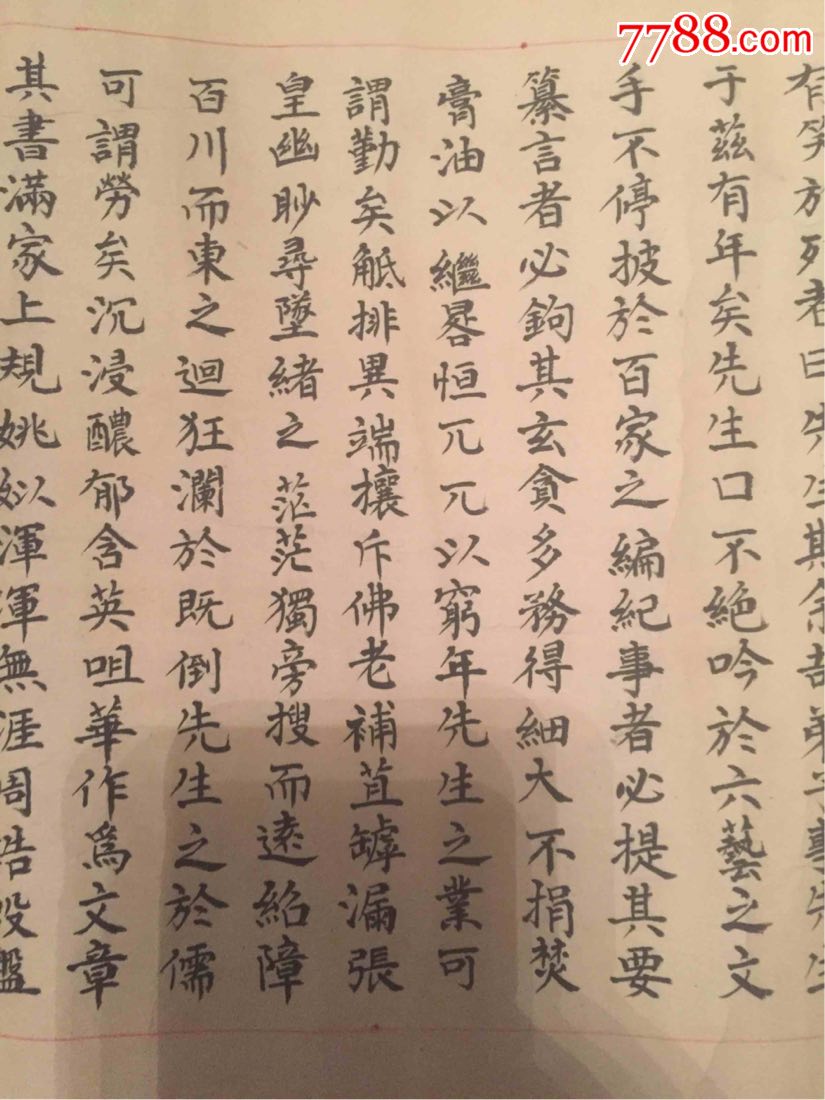 7788.com
有笑於列者曰先生余哉弟子事先生
于茲有年矣先生口不絕吟於六藝之文
手不停披於百家之編紀事者必提其要
纂言者必鉤其玄貪多務得細大不捐焚
膏油以繼晷恒兀兀以窮年先生之業可
謂勤矣觝排異端攘斥佛老補苴罅漏張
皇幽眇尋墜緒之茫茫獨旁搜而遠紹障
百川而東之迴狂瀾於既倒先生之於儒
可謂勞矣沉浸醲郁含英咀華作爲文章
其書滿家上規姚姒渾渾無涯周誥殷盤